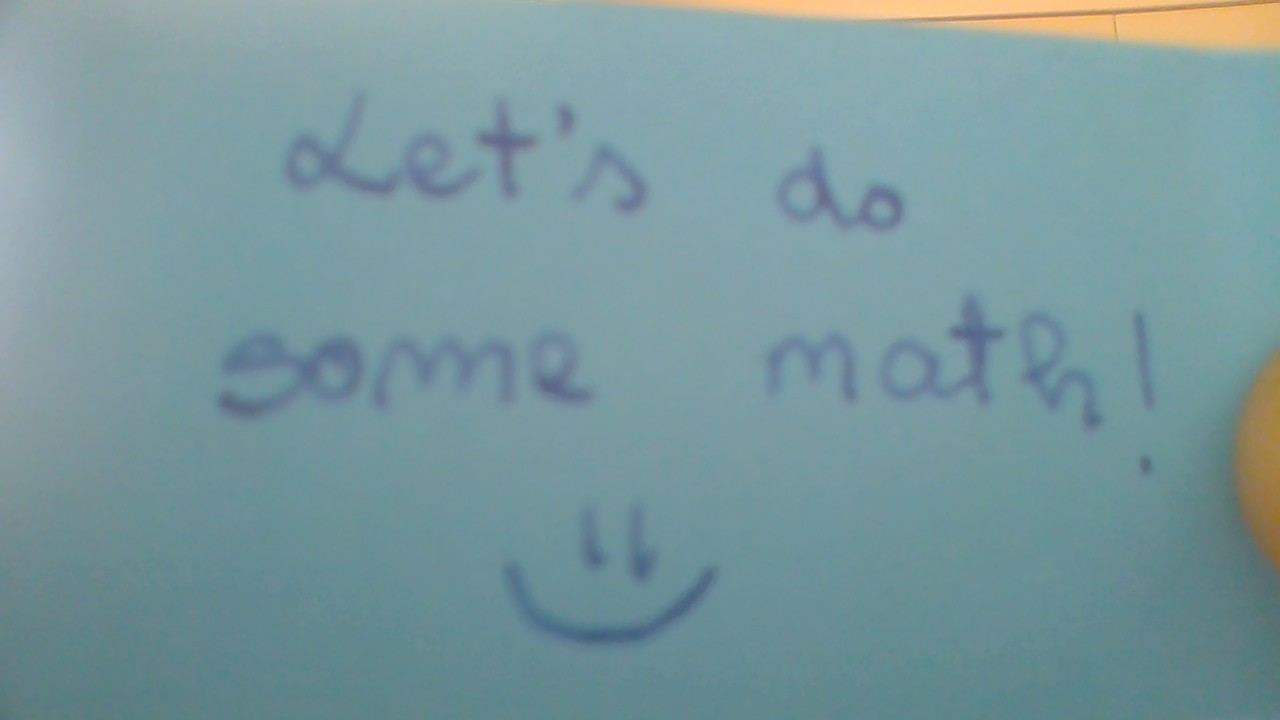 Let's do
some math!